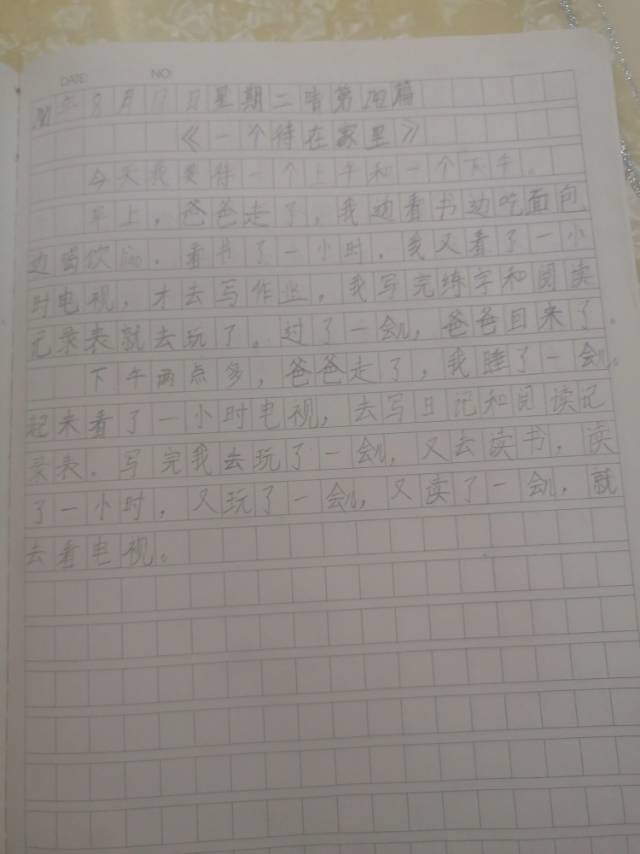 DATE: NO:
年8月17日星期二晴第 篇
《一个待在家里》
今天我要待一个上午和一个下午。
早上，爸爸走了，我边看书边吃面包
边喝饮 。看书了一小时，我又看了一小
时电视，才去写作业，我写完练字和阅读
记录表就去玩了。过了一会儿，爸爸回来了。
下午两点多，爸爸走了，我睡了一会儿。
起来看了一小时电视，去写日记和阅读记
录表。写完我去玩了一会儿，又去读书，读
了一小时，又玩了一会儿，又读了一会儿，就
去看电视。